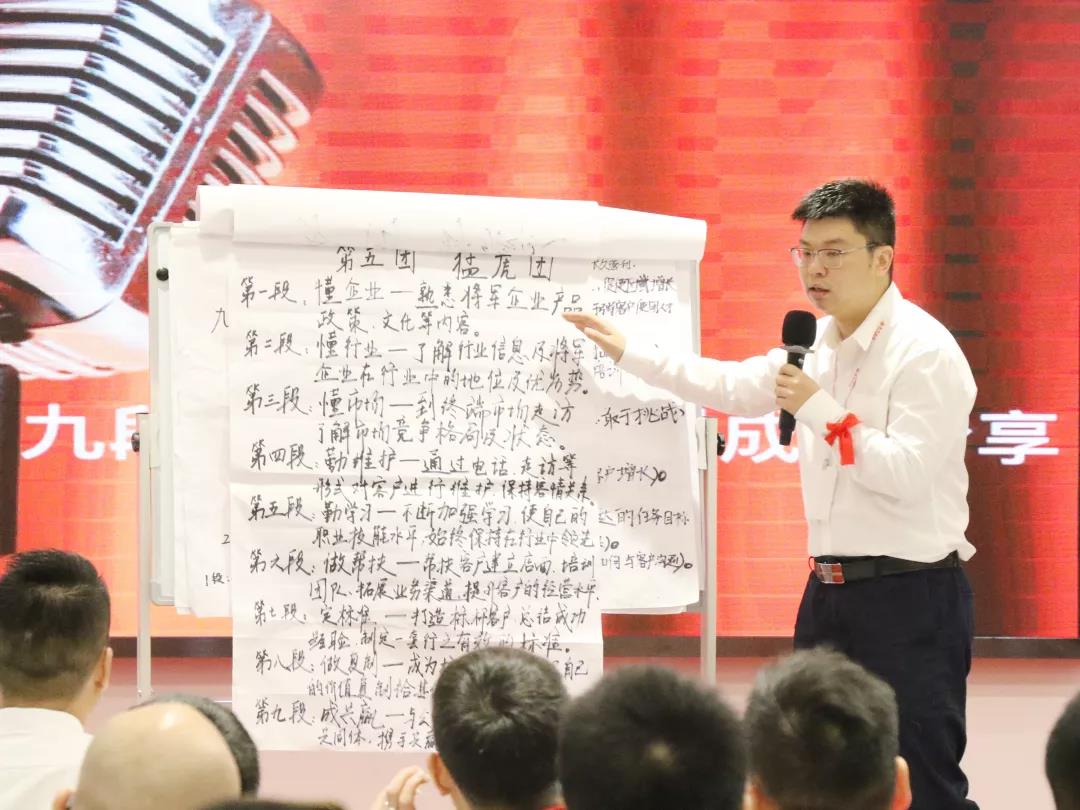 第五团 猛虎团
第一段：懂企业—熟悉将军企业产品
政策、文化等内容。
第二段：懂行业—了解行业信息及将军
企业在行业中的地位及优劣势。
第三段：懂市场—到终端市场走访
了解市场竞争格局及状态。
第四段：勤维护—通过电话、走访等
形式对客户进行维护，保持客情关系
第五段：勤学习—不断加强学习，使自己的
职业技能水平，始终保持在行业中领先
第六段：做帮扶—帮扶客户建立店面、培训
团队、拓展业务渠道，提升客户的经营水平
第七段：定标准—打造标杆客户总结成功
经验，制定一套行之有效的标准。
第八段：做复制—成为 自己
的价值复制给
第九段：成共赢—与
共同体，携手共赢
九
敢于挑战
户增长）。
达的任务目标
何与客户沟通）。
1段：
九段 成 分享